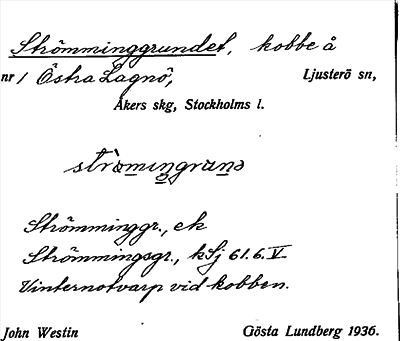 Strömminggrundet, kobbe å
nr 1 Östra Lagnö, Ljusterö sn,
Åkers skg, Stockholms l.
strömingrund
Strömminggr., ek
Strömmingsgr., kSj 61.6.V
Vinternotvarp vid kobben.
John Westin Gösta Lundberg 1936.